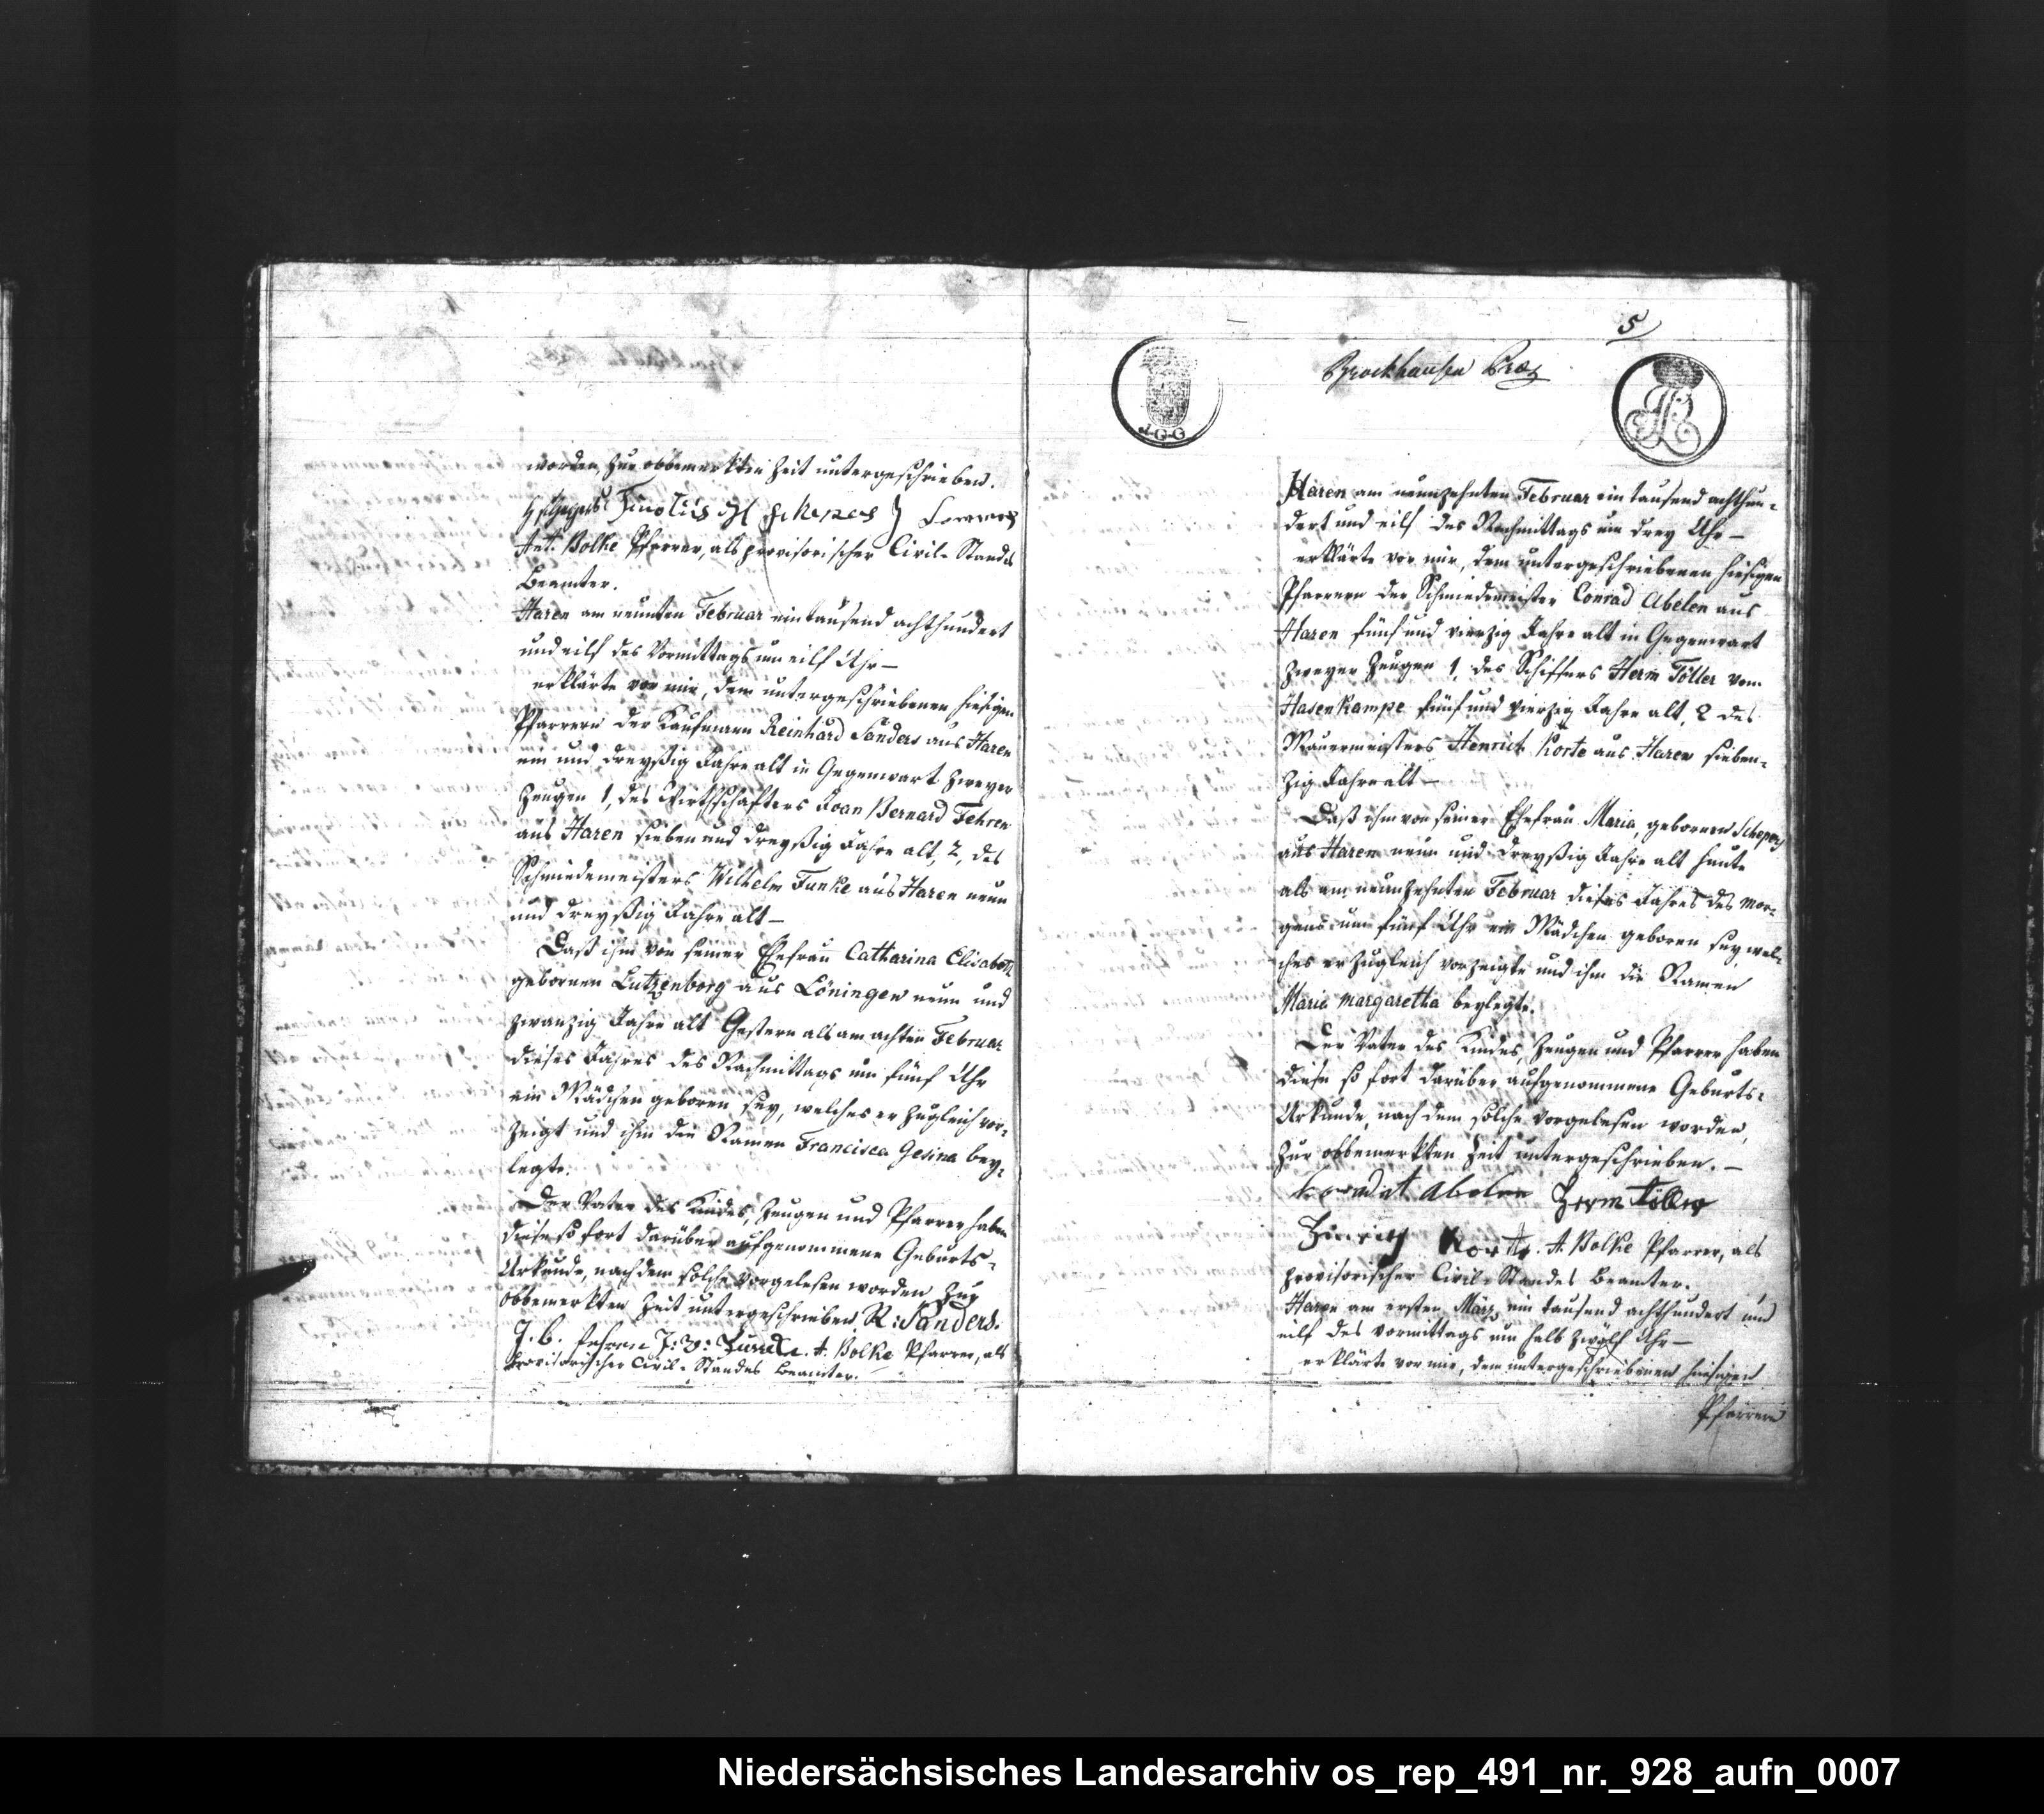 worden, zur obbemerkten Zeit untergeschrieben.
Schepes
Ant. Bolke Pfarrer, als provisorischer Civil-Standes
Beamter.
Haren am neunten Februar ein tausend achthundert
und eilf des Vormittags um eilf Uhr —
erklärte vor mir, dem untergeschriebenen hiesigen
Pfarrern der Kaufmann Reinhard Sanders aus Haren
ein und dreyßig Jahre alt in Gegenwart zweyer
Zeugen 1, des Wirthschafters Joan Bernard Fehren
aus Haren sieben und dreyßig Jahre alt, 2, des
Schmiedemeisters Wilhelm Funke aus Haren neun
und dreyßig Jahre alt —
Daß ihm von seiner Ehefrau Catharina Elisabeth
gebornen Lutzenborg aus Löningen neun und
zwanzig Jahre alt Gestern als am achten Februar
dieses Jahres des Nachmittags um fünf Uhr
ein Mädchen geboren sey, welches er zugleich vor-
zeigt und ihm die Namen Francisca Gesina bey-
legte.
Der Vater des Kindes, Zeugen und Pfarrer haben
diese so fort darüber aufgenommene Geburts-
Urkunde, nach dem solche vorgelesen worden zur
obbemerkten Zeit untergeschrieben. R: Sanders.
J. B. Fehren A. Bolke Pfarrer, als
provisorischer Civil-Standes Beamter.
5
Brockhausen
J.G.G
Haren am neunzehnten Februar ein tausend achthun-
dert und eilf des Nachmittags um drey Uhr —
erklärte vor mir, dem untergeschriebenen hiesigen
Pfarrern der Schmiedemeister Conrad Abelen aus
Haren fünf und vierzig Jahre alt in Gegenwart
zweyer Zeugen 1, des Schiffers Herm Töller vom
Hasenkampe fünf und vierzig Jahre alt, 2 des
Mauermeisters Henrich Korte aus Haren sieben-
zig Jahre alt —
Daß ihm von seiner Ehefrau Maria, gebornen Schepers
aus Haren neun und dreyßig Jahre alt heute
als am neunzehnten Februar dieses Jahres des mor-
gens um fünf Uhr ein Mädchen geboren sey, wel-
ches er zugleich vorzeigte und ihm die Namen
Maria margaretha beylegte.
Der Vater des Kindes, Zeugen und Pfarrer haben
diese so fort darüber aufgenommene Geburts-
Urkunde, nach dem solche vorgelesen worden,
zur obbemerkten Zeit untergeschrieben. —
Konradt Abelen Herm Töller
Hinrich Korte. A. Bolke Pfarrer, als
provisorischer Civil-Standes Beamter.
Haren am ersten März ein tausend achthundert und
eilf des vormittags um halb zwölf Uhr —
erklärte vor mir, dem untergeschriebenen hiesigen
Pfarrern
Niedersächsisches Landesarchiv os_rep_491_nr._928_aufn_0007